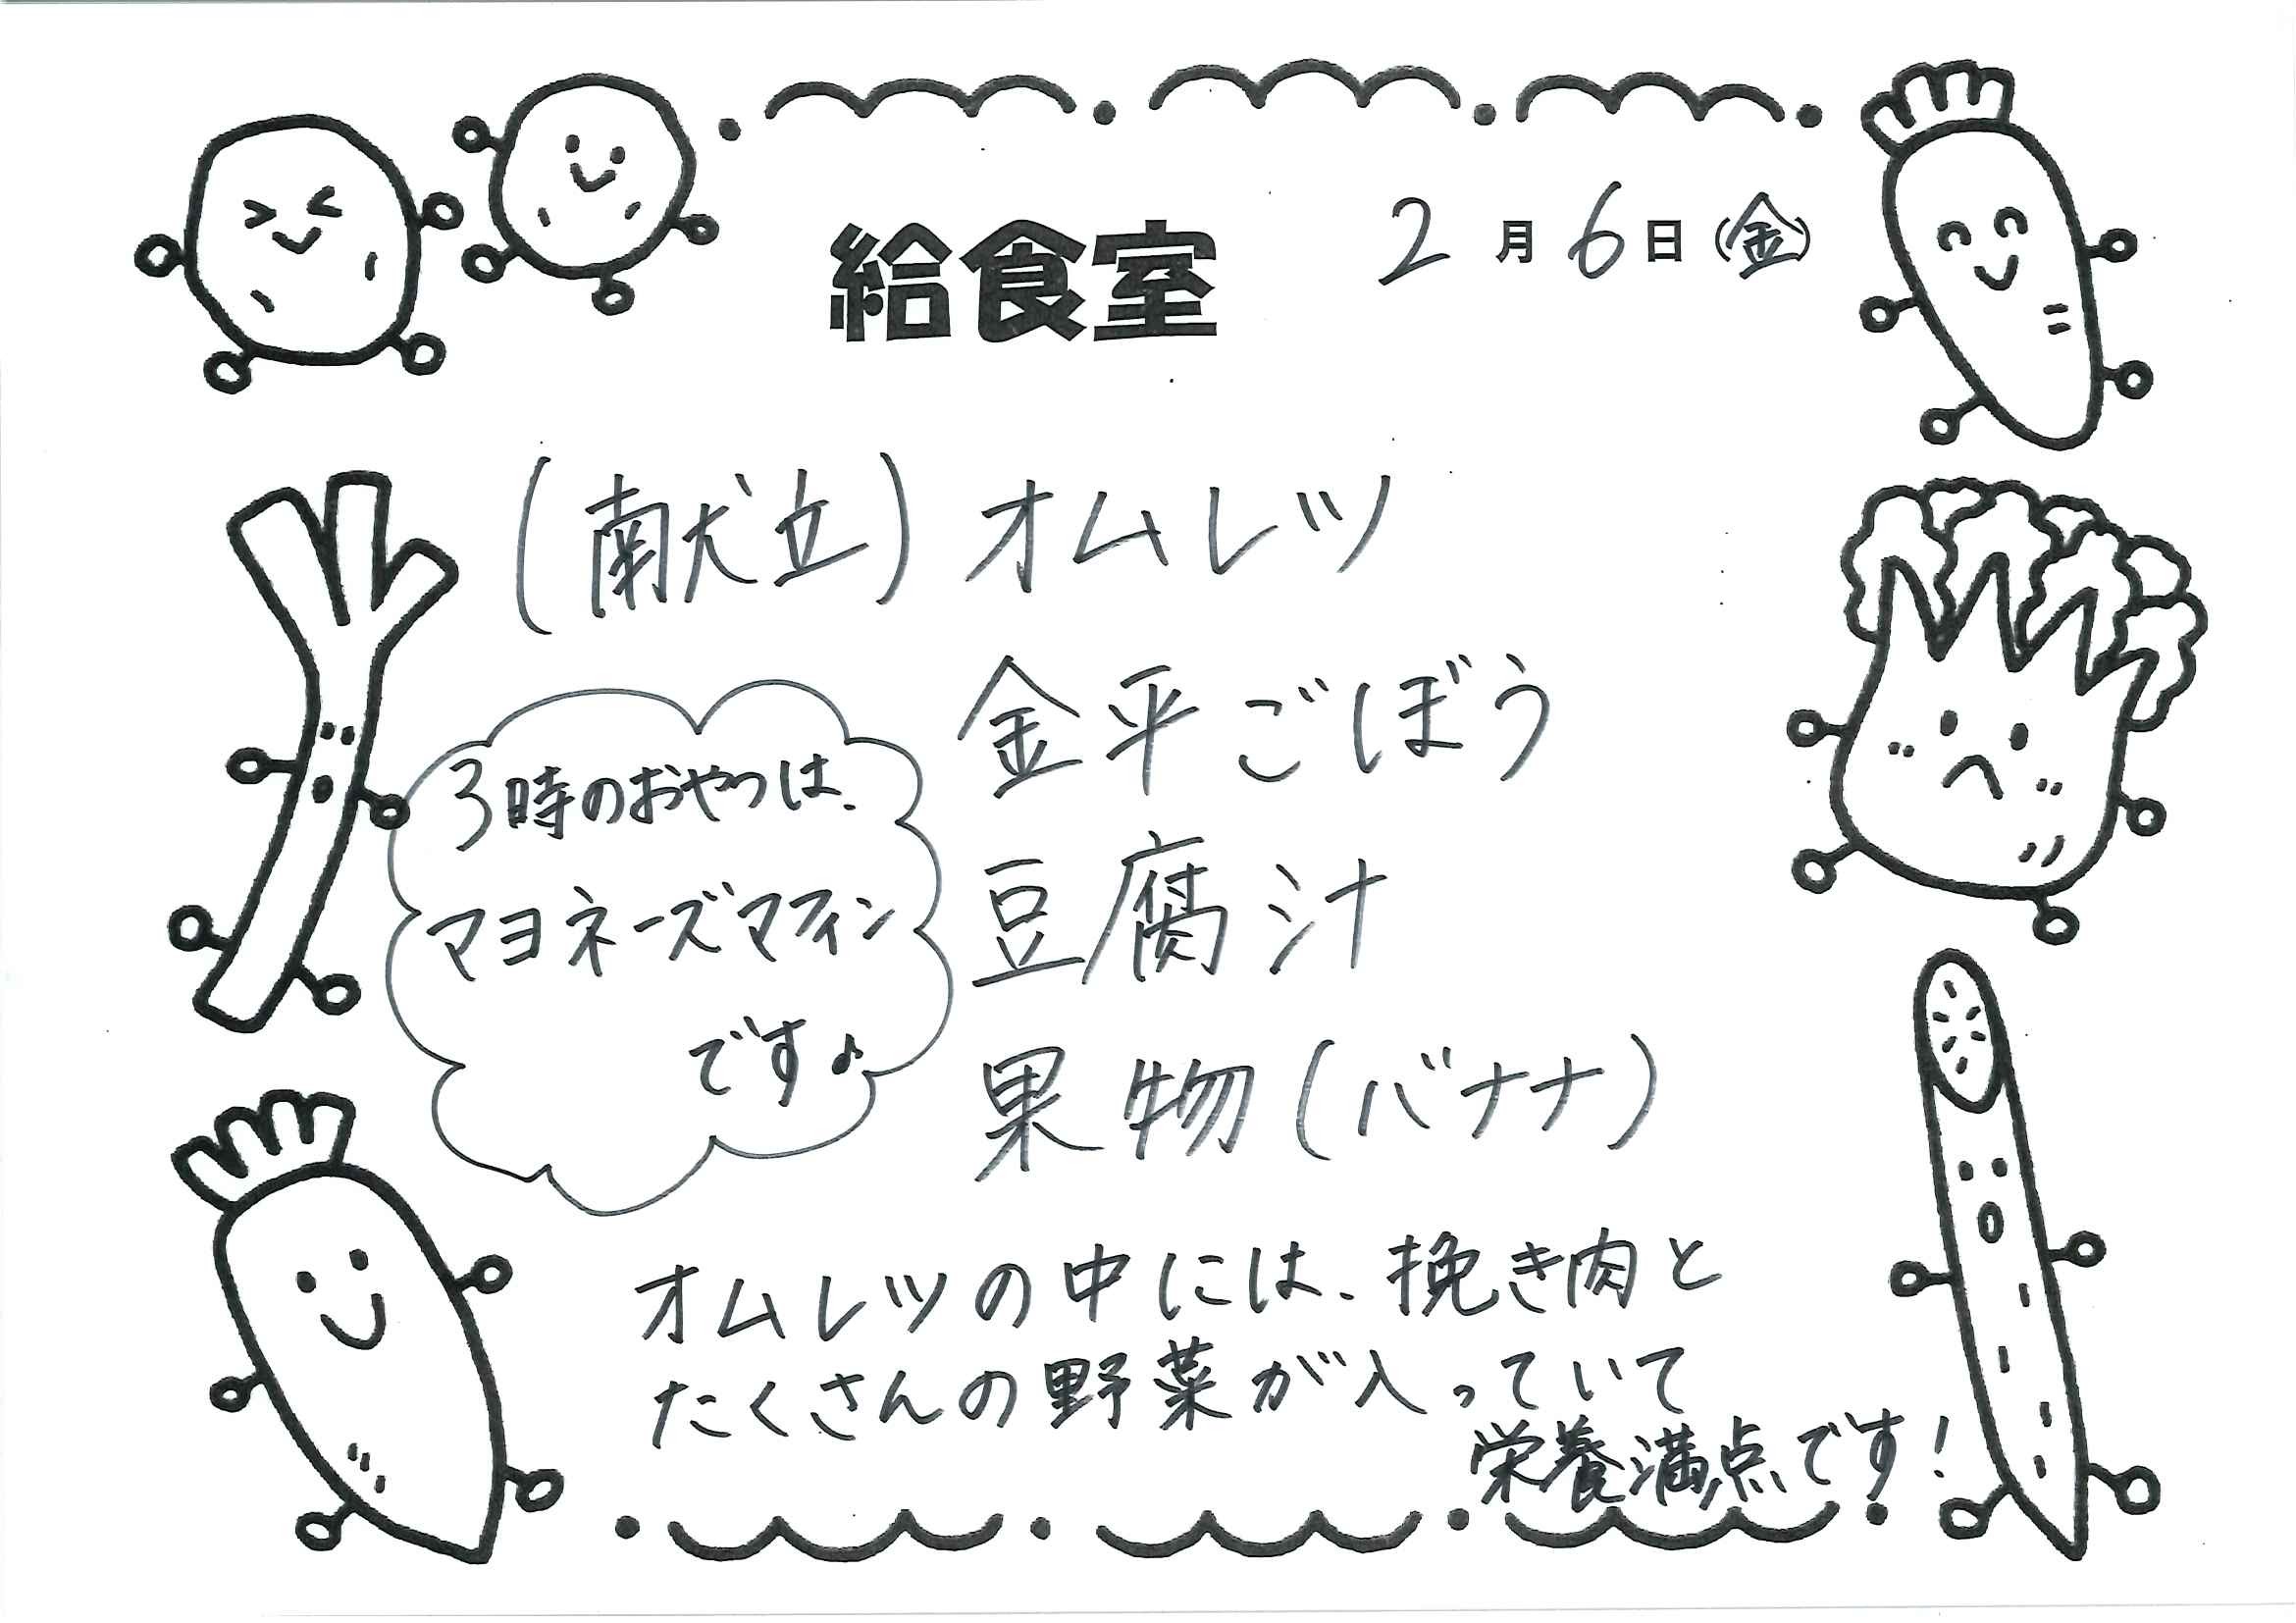 給食室
2月6日(金)
(献立)オムレツ
金平ごぼう
豆腐汁
果物(バナナ)
3時のおやつは、
マヨネーズマフィン
です♪
オムレツの中には、挽き肉と
たくさんの野菜が入っていて
栄養満点です!